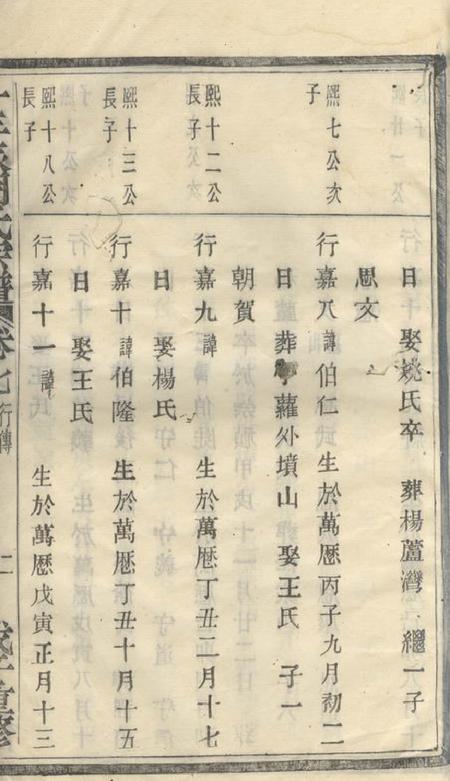 日 娶姚氏卒 葬楊蘆灣 繼一子
思文
熙七公次
子
行嘉八諱伯仁 生於萬曆丙子九月初二
日 葬 蘿外墳山 娶王氏 子一
朝賀
熙十二公
長子
行嘉九諱 生於萬曆丁丑二月十七
日 娶楊氏
熙十三公
長子
行嘉十諱伯隆 生於萬曆丁丑十月十五
日 娶王氏
熙十八公
長子
行嘉十一諱 生於萬曆戊寅正月十三
宗譜 卷七 行傳 二 重修